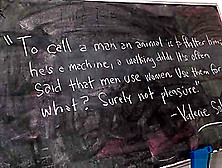 "To call a man an animal is to flatter him;
he's a machine, a walking dildo. It's often
said that men use women. Use them for
what? Surely not pleasure."
-Valerie